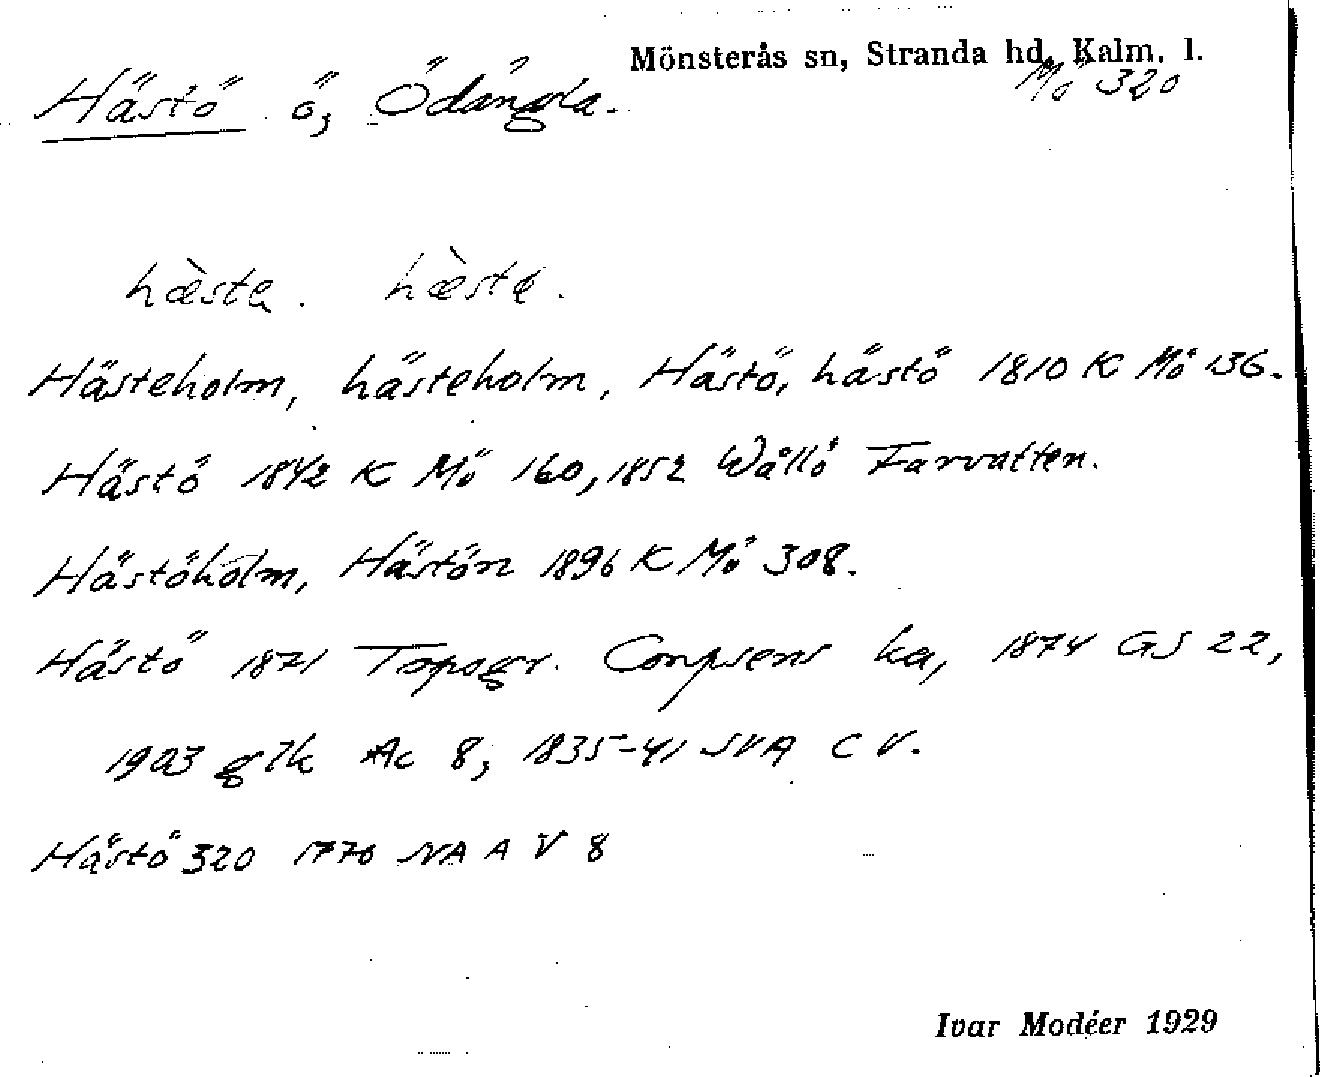 Mönsterås sn, Stranda hd, Kalm. l.
Mö 320
Hästö ö, Ödängla.
hæ̀stə. hæ̀stɐ.
Hästeholm, hästeholm, Hästö, hästö 1810 K Mö 136.
Hästö 1842 K Mö 160, 1852 Wållö Farvatten.
Hästöholm, Hästön 1896 K Mö 308.
Hästö 1871 Topogr. Corpsens ka, 1874 GS 22,
1903 glk Ac 8, 1835-41 SVA C V.
Hästö 320 1770 NA A V 8
Ivar Modéer 1929